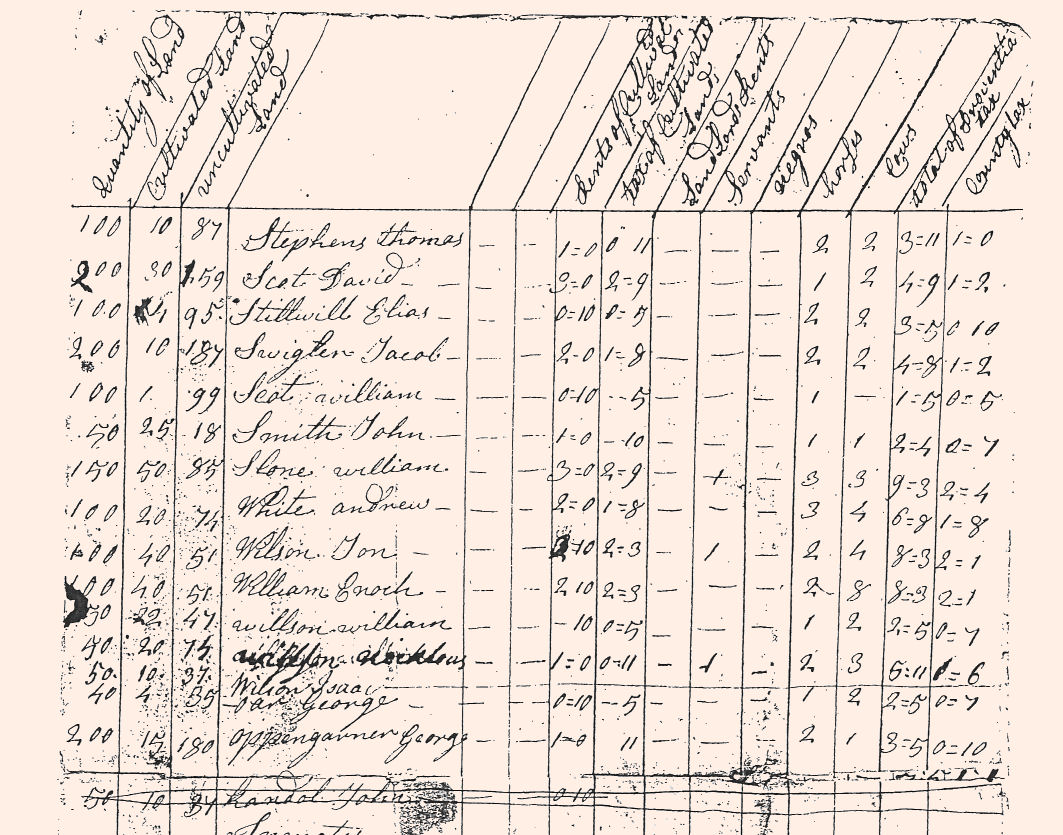 Quantity of Land
Cultivated Land
uncultivated Land
Rents of Cultivated Land
tax of Cultivated Land
Land Lords Rents
Servants
negros
horses
Cows
total of Provential tax
County tax
100 10 87 Stephens thomas — - 1=0 0 11 — — — 2 2 3=11 1=0
200 30 159 Scot David — — - 3=0 2=9 — — — 1 2 4=9 1=2
100 4 95 Stillwill Elias — — - 0=10 0=5 — — — 2 2 3=5 0 10
200 10 187 Swigler Jacob — — - 2=0 1=8 — — — 2 2 4=8 1=2
100 1 99 Scot william — — - 0=10 --5 — — — 1 — 1=5 0=5
50 25 18 Smith John — — - 1=0 - 10 — — — 1 1 2=4 0=7
150 50 85 Slone william — — 3=0 2=9 — + — 3 3 9=3 2=4
100 20 74 White andrew — — - 2=0 1=8 — — — 3 4 6=8 1=8
100 40 51 Wilson Jon — — - 2=10 2=3 — 1 — 2 4 8=3 2=1
100 40 51 William Enoch — — - 2 10 2=3 — — — 2 8 8=3 2=1
50 22 47 willson william — — - 10 0=5 — — — 1 2 2=5 0=7
90 20 74
50 10 37 Wilson Isaac — — 1=0 0=11 — 1 — 2 3 6=11 1=6
40 4 35 George — — - 0=10 --5 — — — 1 2 2=5 0=7
200 15 180 Oppengarner George — - 1=0 11 — — — 2 1 3=5 0=10
50 10 37 Randol John 0 10